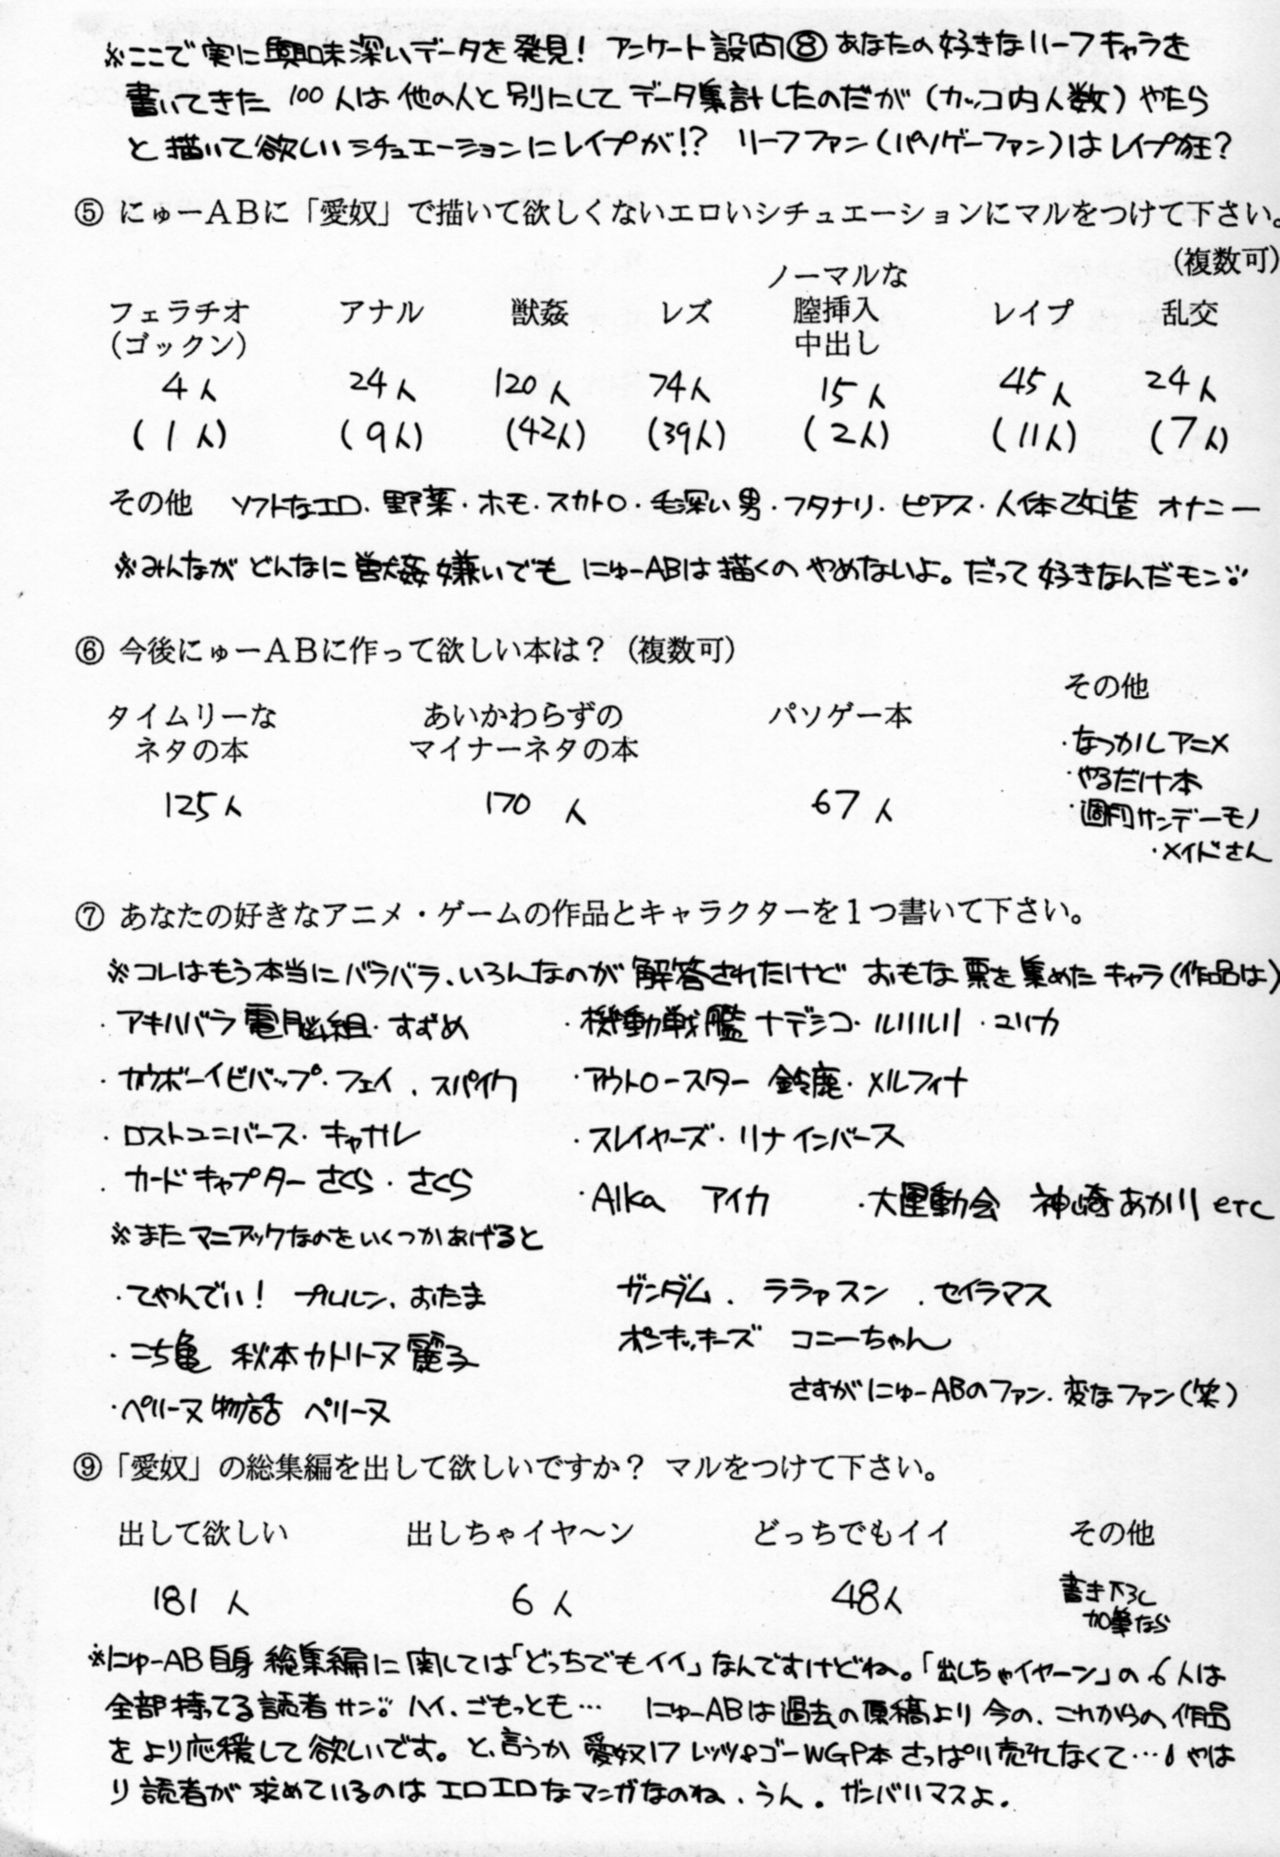 ※ここで実に興味深いデータを発見！ アンケート設問⑧あなたの好きなリーフキャラを
書いてきた 100人は他の人と別にしてデータ集計したのだが（カッコ内人数）やたら
と描いて欲しいシチュエーションにレイプが!? リーフファン（パソゲーファン）はレイプ狂？
⑤ にゅーＡＢに「愛奴」で描いて欲しくないエロいシチュエーションにマルをつけて下さい。
（複数可）
フェラチオ（ゴックン） アナル 獣姦 レズ ノーマルな膣挿入中出し レイプ 乱交
4人 24人 120人 74人 15人 45人 24人
（1人） （9人） （42人） （39人） （2人） （11人） （7人）
その他 ソフトなエロ・野菜・ホモ・スカトロ・毛深い男・フタナリ・ピアス・人体改造 オナニー
※みんながどんなに獣姦嫌いでも にゅーABは描くのやめないよ。だって好きなんだモン。
⑥ 今後にゅーＡＢに作って欲しい本は？（複数可）
タイムリーなネタの本 あいかわらずのマイナーネタの本 パソゲー本 その他
125人 170人 67人
・なつかしアニメ
・やるだけ本
・週刊サンデーモノ
・メイドさん
⑦ あなたの好きなアニメ・ゲームの作品とキャラクターを１つ書いて下さい。
※コレはもう本当にバラバラ、いろんなのが解答されたけど おもな票を集めたキャラ（作品は）
・アキハバラ電脳組・すずめ ・機動戦艦ナデシコ・ルリルリ・ユリカ
・カウボーイビバップ・フェイ、スパイク ・アウトロースター 鈴鹿・メルフィナ
・ロストユニバース・キャナル ・スレイヤーズ・リナインバース
・カードキャプターさくら・さくら ・AIka アイカ ・大運動会 神崎あかり etc
※またマニアックなのをいくつかあげると
・てやんでい！ プルルン、おたま ガンダム、ララァスン、セイラマス
・こち亀 秋本カトリーヌ麗子 ポンキッキーズ コニーちゃん
・ペリーヌ物語 ペリーヌ さすがにゅーABのファン、変なファン（笑）
⑨「愛奴」の総集編を出して欲しいですか？ マルをつけて下さい。
出して欲しい 出しちゃイヤ～ン どっちでもイイ その他
181人 6人 48人 書き下ろし加筆なら
※にゅーAB自身 総集編に関しては「どっちでもイイ」なんですけどね。「出しちゃイヤーン」の6人は
全部持ってる読者サン。ハイ、ごもっとも… にゅーABは過去の原稿より今の、これからの作品
をより応援して欲しいです。と、言うか 愛奴17 レッツ&ゴーWGP本さっぱり売れなくて…やは
り読者が求めているのはエロエロなマンガなのね、うん。ガンバリマスよ。